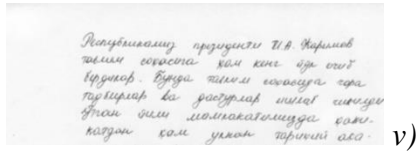 Республикамиз президенти И.А. Каримов
таълим соҳасига ҳам кенг йўл очиб
бердилар. Бунда таълим соҳасида қатор
тадбирлар ва дастурлар ишлаб чиқилди
Ўтган йили мамлакатимизда ҳақи-
қатдан ҳам улкан тарихий аҳа-
v)